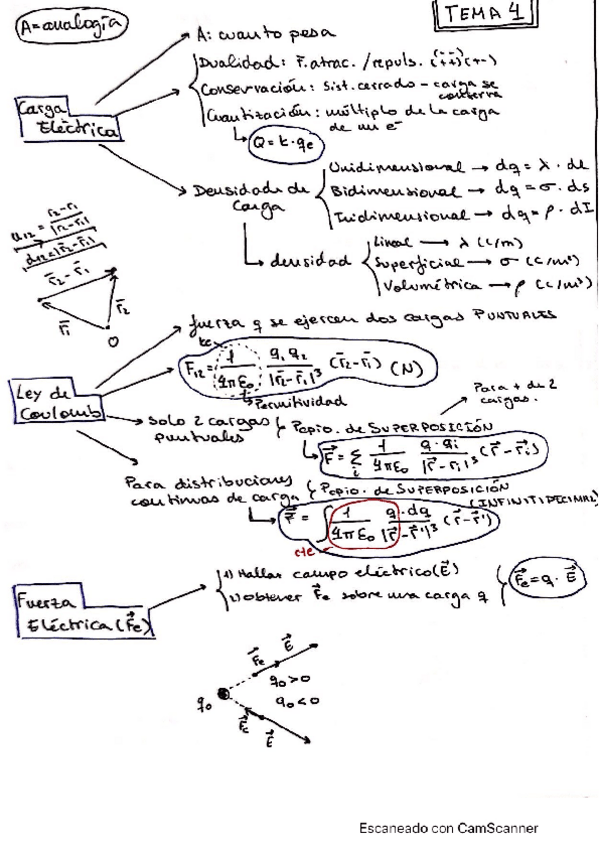 A=analogía
TEMA 1
A: cuanto pesa
Dualidad: F. atrac. / repuls. (++) (+-)
Conservación: Sist. cerrado - carga se conserva
Cuantización: múltiplo de la carga de un e⁻
Q = k·qe
Carga Eléctrica
Densidad de carga
Unidimensional → dq = λ · dl
Bidimensional → dq = σ · ds
Tridimensional → dq = ρ · dI
densidad
Lineal → λ (C/m)
Superficial → σ (C/m²)
Volumétrica → ρ (C/m³)
u₁₂ = r₂-r₁ / |r₂-r₁|
d₁₂ = |r₂-r₁|
r₂-r₁
r₁
r₂
O
fuerza q se ejercen dos cargas PUNTUALES
Ley de Coulomb
F₁₂ = 1/4πε₀ q₁q₂/|r₂-r₁|³ (r₂-r₁) (N)
Permitividad
Para + de 2 cargas.
Solo 2 cargas puntuales
Pcpio. de SUPERPOSICIÓN
F = Σᵢ 1/4πε₀ q·qi/|r-ri|³ (r-ri)
Para distribuciones continuas de carga
Pcpio. de SUPERPOSICIÓN (INFINITIDECIMAL)
F = ∫ 1/4πε₀ q·dq/|r-r'|³ (r-r')
cte
Fuerza Eléctrica (Fe)
1) Hallar campo eléctrico (E)
2) Obtener Fe sobre una carga q
Fe = q · E
Fe
E
q₀>0
q₀
q₀<0
Fe
E
Escaneado con CamScanner